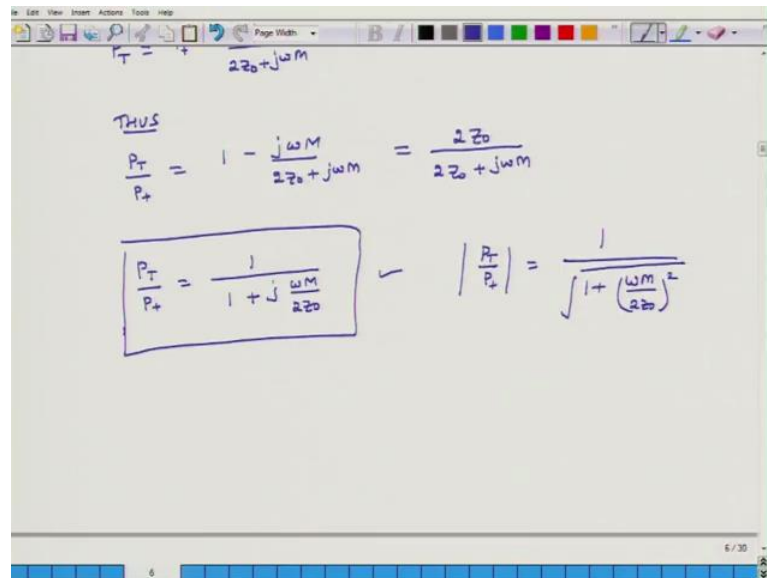 File Edit View Insert Actions Tools Help
Page Width B
P_T = 1 - / 2z₀+jωM
THUS
P_T/P₊ = 1 - jωM/(2z₀+jωM) = 2Z₀/(2Z₀+jωM)
P_T/P₊ = 1/(1 + j ωM/2z₀) ✓ |P_T/P₊| = 1/√(1+(ωM/2z₀)²)
6/30
6